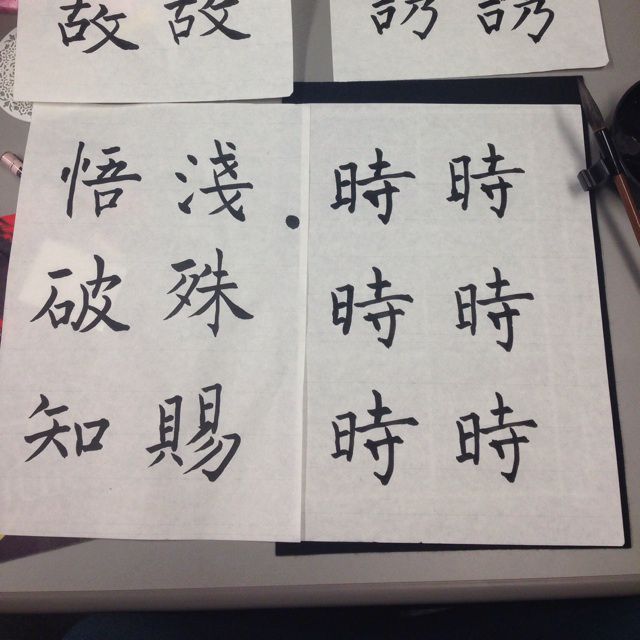 誘
誘
故
故
時時時
時時時
淺殊賜
悟破知